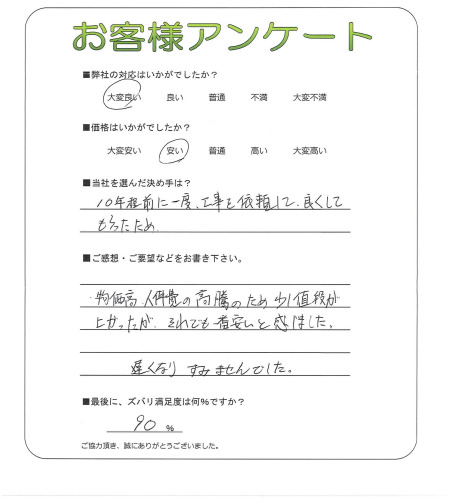 お客様アンケート
■弊社の対応はいかがでしたか?
大変良い 良い 普通 不満 大変不満
■価格はいかがでしたか?
大変安い 安い 普通 高い 大変高い
■当社を選んだ決め手は?
10年程前に一度、工事を依頼して、良くして
もらったため
■ご感想・ご要望などをお書き下さい。
物価高、人件費の高騰のため少し値段が
上がったが、それでも一番安いと感じました。
遅くなりすみませんでした。
■最後に、ズバリ満足度は何%ですか?
90 %
ご協力頂き、誠にありがとうございました。